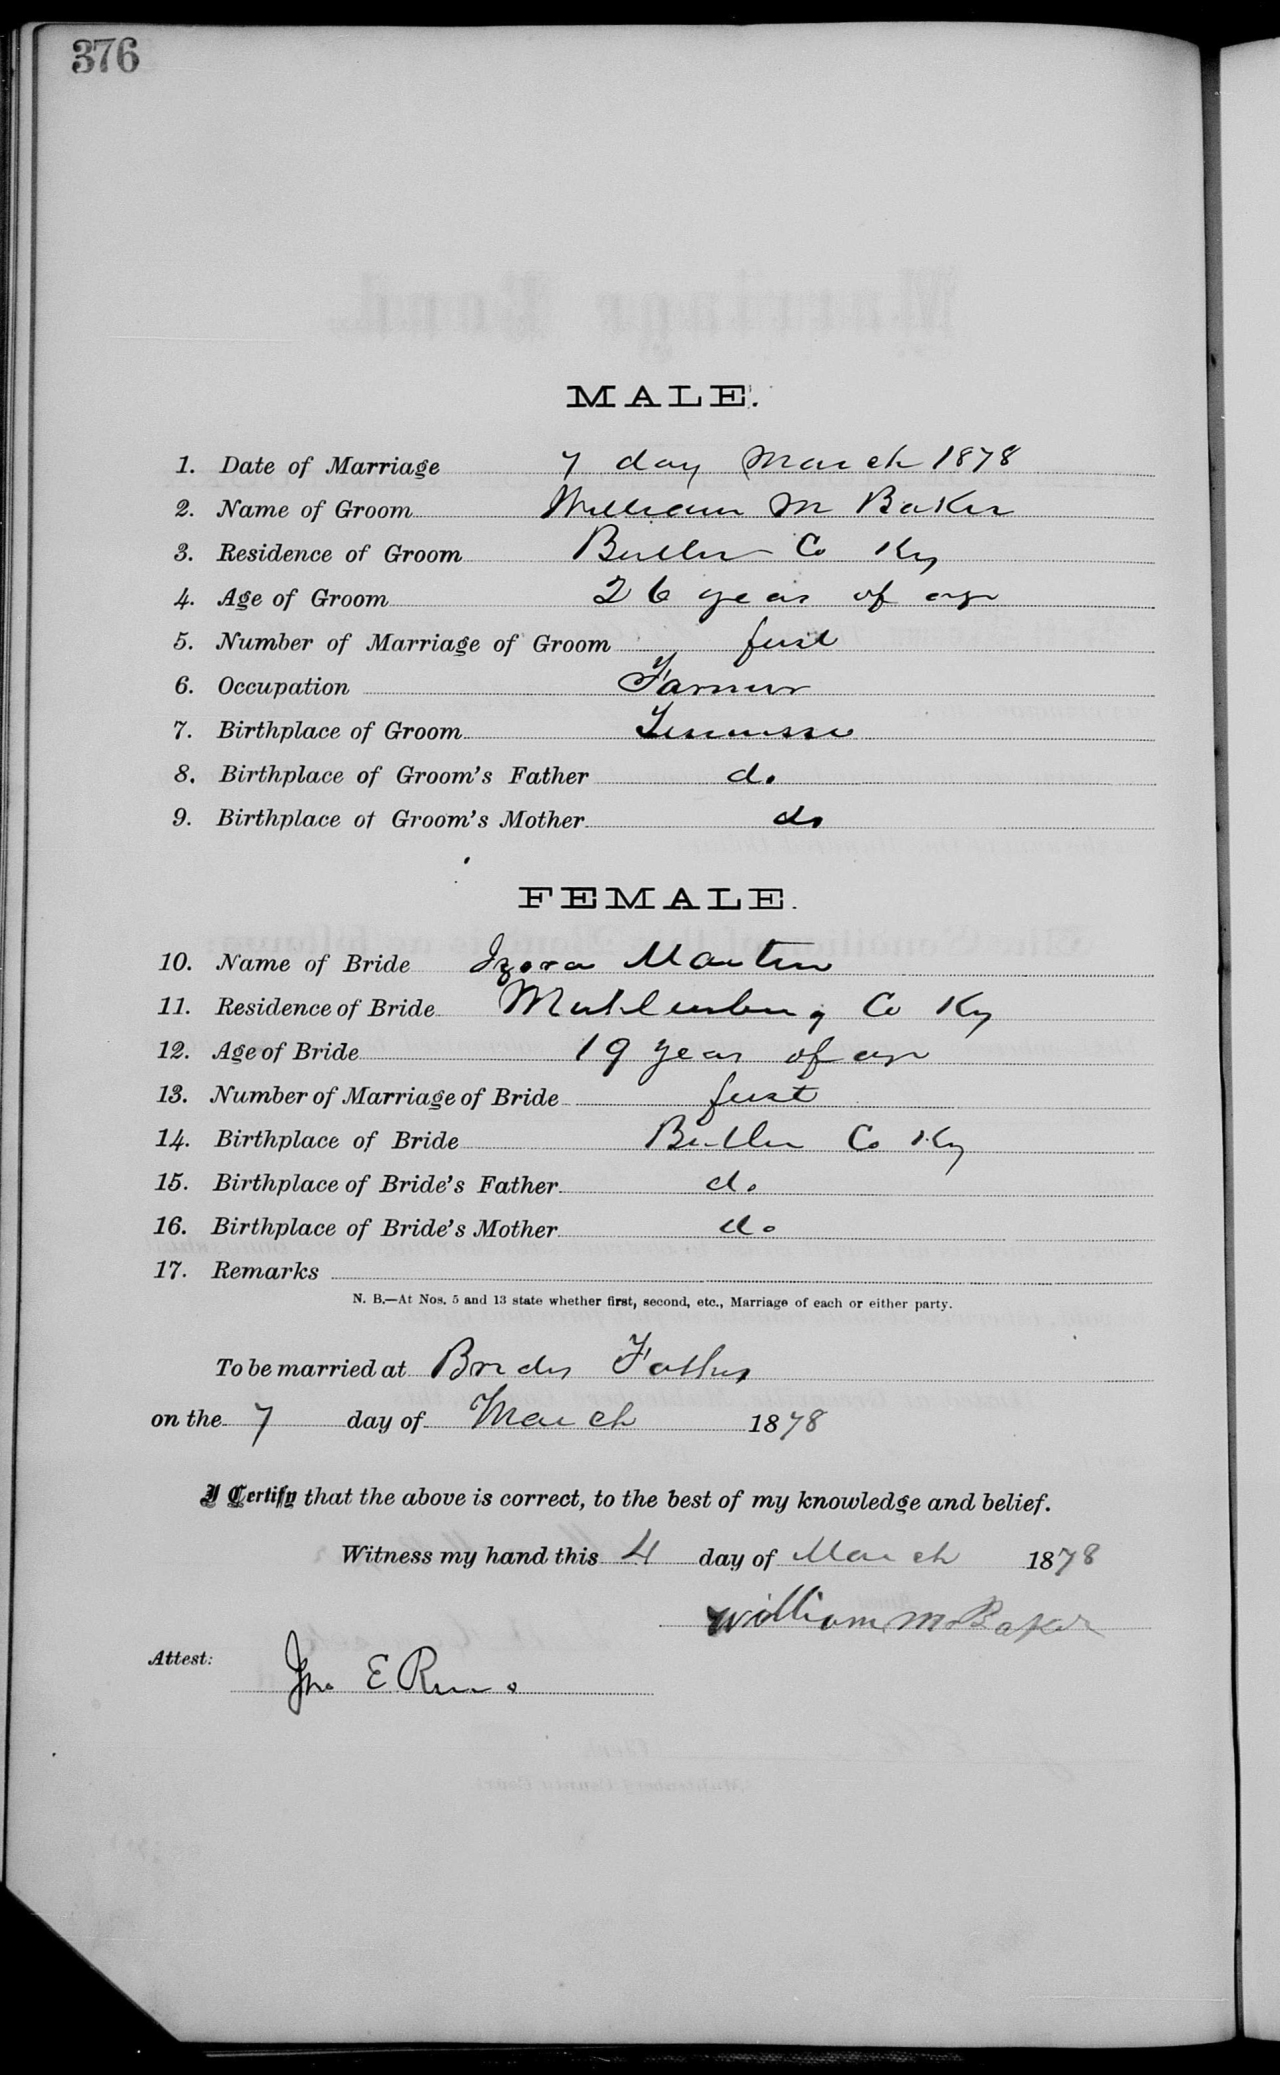 376
MALE.
1. Date of Marriage 7 day March 1878
2. Name of Groom William M Baker
3. Residence of Groom Butler Co Ky
4. Age of Groom 26 years of age
5. Number of Marriage of Groom first
6. Occupation Farmer
7. Birthplace of Groom Tennessee
8. Birthplace of Groom's Father do
9. Birthplace of Groom's Mother do
FEMALE.
10. Name of Bride Izora Martin
11. Residence of Bride Muhlenberg Co Ky
12. Age of Bride 19 years of age
13. Number of Marriage of Bride first
14. Birthplace of Bride Butler Co Ky
15. Birthplace of Bride's Father do
16. Birthplace of Bride's Mother do
17. Remarks
N. B.—At Nos. 5 and 13 state whether first, second, etc., Marriage of each or either party.
To be married at Brides Fathers
on the 7 day of March 1878
I Certify that the above is correct, to the best of my knowledge and belief.
Witness my hand this 4 day of March 1878
William M Baker
Attest:
Jno E Reno